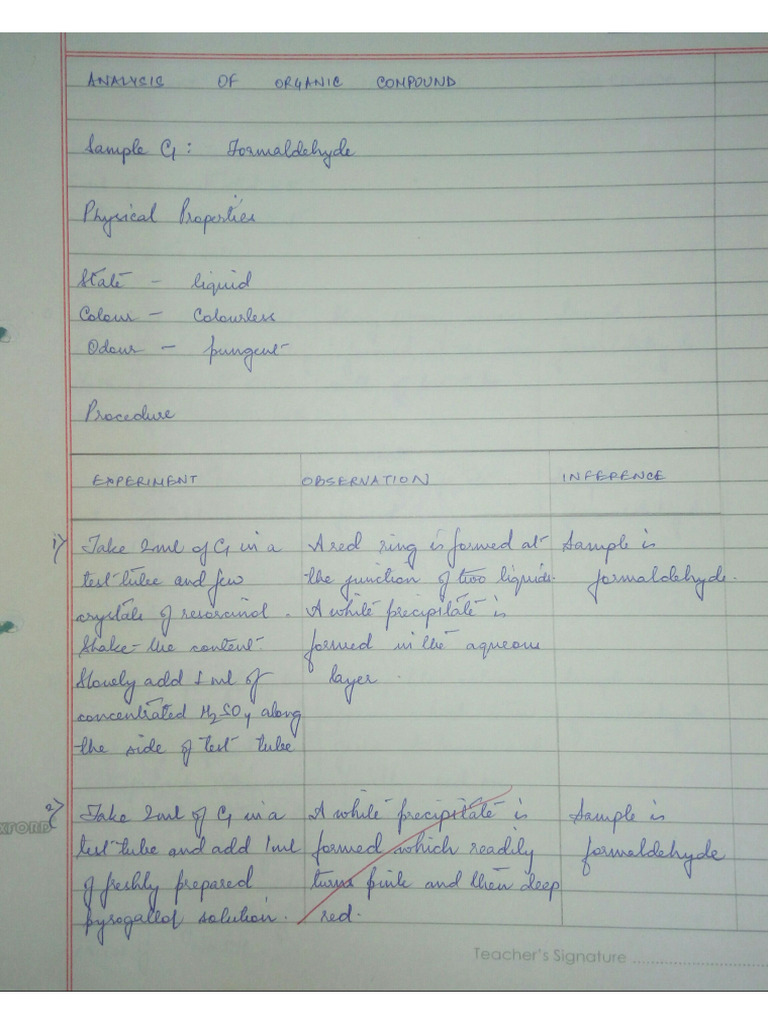 ANALYSIS OF ORGANIC COMPOUND
Sample G: Formaldehyde
Physical Properties
State - liquid
Colour - Colourless
Odour - pungent
Procedure
EXPERIMENT OBSERVATION INFERENCE
1) Take 2ml of G in a
test tube and few
crystals of resorcinol.
Shake the content.
Slowly add 1 ml of
concentrated H2SO4 along
the side of test tube
A red ring is formed at
the junction of two liquids.
A white precipitate is
formed in the aqueous
layer.
Sample is
formaldehyde.
2) Take 2ml of G in a
test tube and add 1ml
of freshly prepared
pyrogallol solution.
A white precipitate is
formed which readily
turns pink and then deep
red.
Sample is
formaldehyde
XFORD
Teacher's Signature